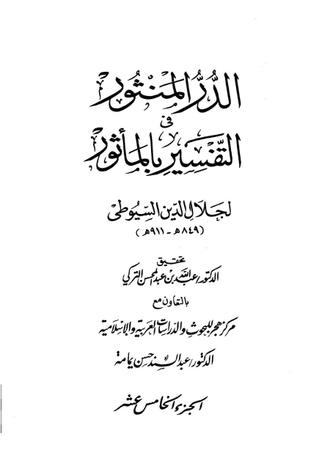 الدُّرُّ المَنْثُور
في
التَّفسِيرِ بِالمأثُور
لجَلال الدِّين السِّيوطي
(٨٤٩هـ - ٩١١هـ)
تحقيق
الدكتور/عبد اللَّه بن عبد المحسن التركي
بالتعاون مع
مركز هجر للبحوث والدراسات العربية والإسلامية
الدكتور/عبد السند حسن يمامة
الجزء الخامس عشر